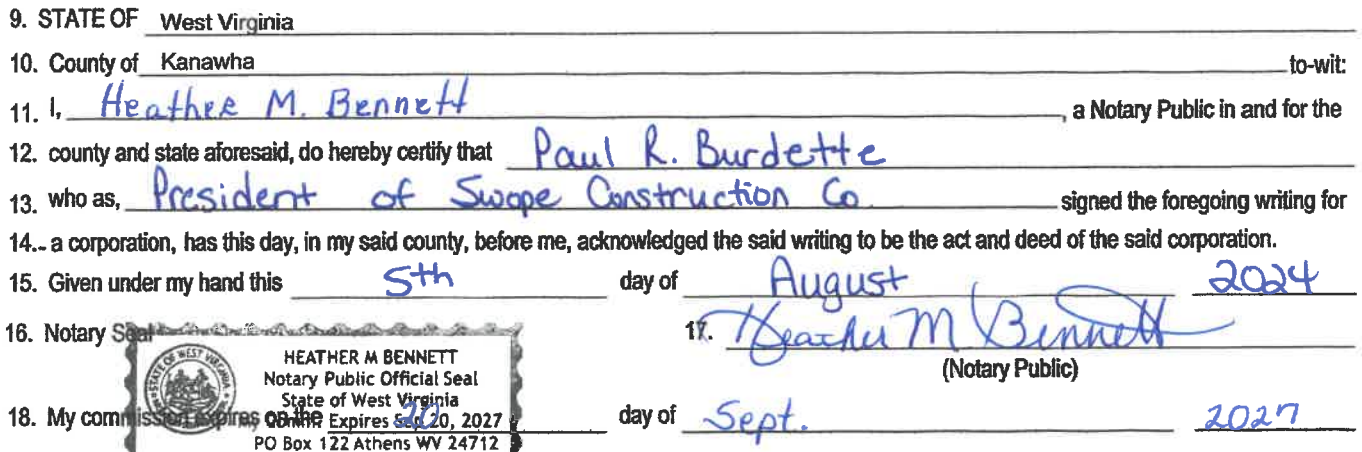 9. STATE OF West Virginia
10. County of Kanawha to-wit:
11. I, Heather M. Bennett, a Notary Public in and for the
12. county and state aforesaid, do hereby certify that Paul R. Burdette
13. who as, President of Swope Construction Co. signed the foregoing writing for
14. a corporation, has this day, in my said county, before me, acknowledged the said writing to be the act and deed of the said corporation.
15. Given under my hand this 5th day of August 2024
16. Notary Seal 17. Heather M Bennett
(Notary Public)
STATE OF WEST VIRGINIA
HEATHER M BENNETT
Notary Public Official Seal
State of West Virginia
Comm. Expires Sep 20, 2027
PO Box 122 Athens WV 24712
18. My commission expires on the 20 day of Sept. 2027